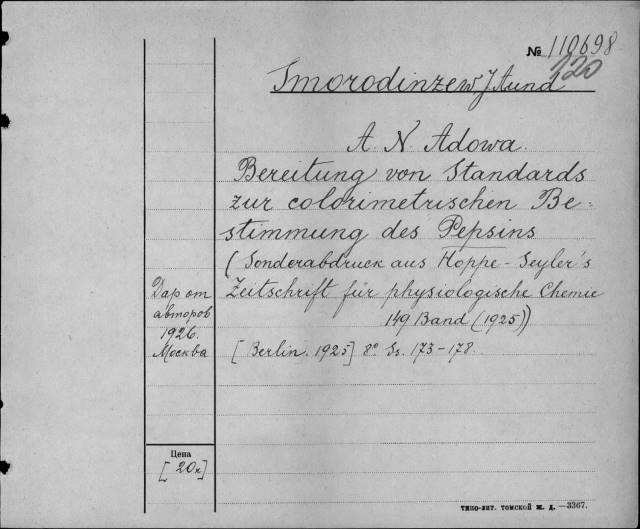 № 110698
120
Smorodinzew J A und
A. N. Adowa.
Bereitung von Standards
zur colorimetrischen Be=
stimmung des Pepsins
(Sonderabdruck aus Hoppe-Seyler's
Zeitschrift für physiologische Chemie
149 Band (1925))
[Berlin. 1925] 8° Ss. 173-178.
Дар от
авторов
1926.
Москва
Цена
[20к]
ТИПО-ЛИТ. ТОМСКОЙ Ж. Д. —3367.